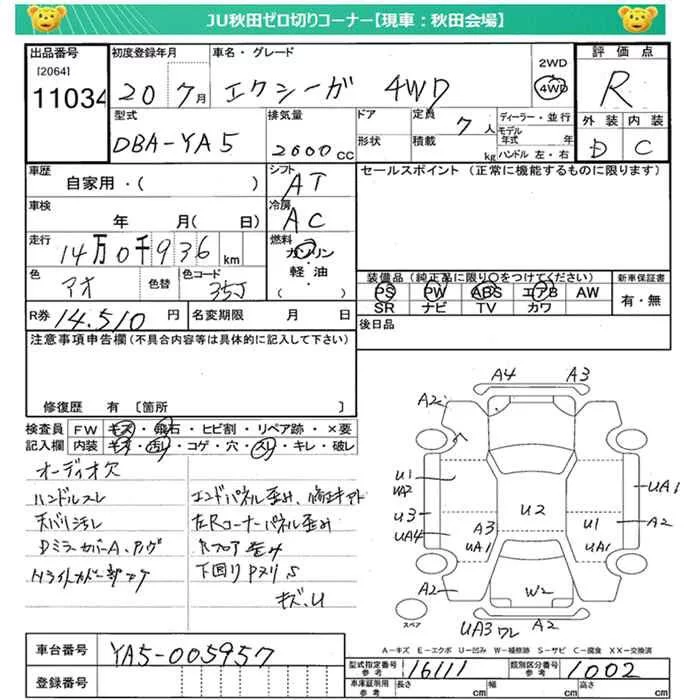 JU秋田ゼロ切りコーナー【現車：秋田会場】
出品番号
[2064]
11034
初度登録年月
20 7月
車名・グレード
エクシーガ 4WD
2WD
4WD
評価点
R
外装 内装
D C
型式
DBA-YA5
排気量
2000cc
ドア
形状
定員
7人
積載
kg
ディーラー・並行
モデル年式 年
ハンドル 左・右
車歴
自家用・( )
シフト
AT
車検
年 月( 日)
冷房
AC
走行
14万0千936km
燃料
ガソリン
軽油
( )
色
アオ
色替
色コード
35J
R券 14.510円
名変期限 月 日
セールスポイント (正常に機能するものに限ります)
装備品(純正品に限り○をつけてください)
PS PW ABS エアB AW
SR ナビ TV カワ
新車保証書
有・無
後日品
注意事項申告欄(不具合内容等は具体的に記入して下さい)
修復歴 有〔箇所 〕
検査員記入欄
FW キズ・飛石・ヒビ割・リペア跡・×要
内装 キズ・汚レ・コゲ・穴・スレ・キレ・破レ
オーディオ欠
ハンドルスレ
天バリ汚レ
DミラーカバーA、
エンドパネル歪み、修正キアト
左Rコーナーパネル歪み
Rフロア歪み
下回りPヌリ、S
キズ、U
A4 A3
A2
U1
UA2
U3
UA4
A3
UA1
U2
U1
UA1
UA1
A2
A2
W2
UA3 ワレ A2
スペア
A－キズ E－エクボ U－凹み W－補修跡 S－サビ C－腐食 XX－交換済
車台番号
YA5-005957
登録番号
型式指定番号
参考
16111
類別区分番号
参考
1002
車庫証明用
参考
長さ cm
幅 cm
高さ cm